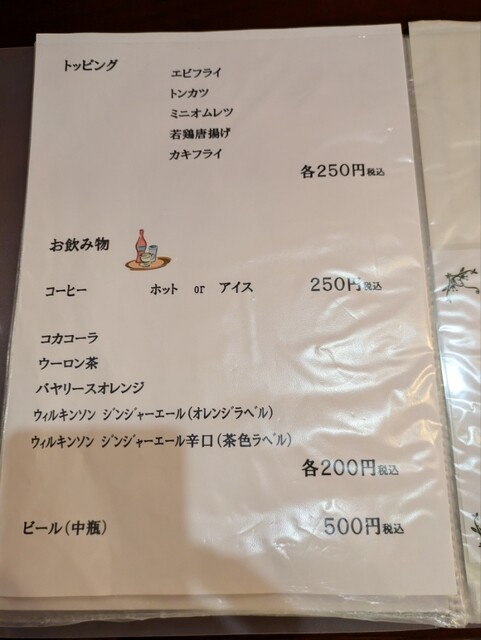 トッピング
エビフライ
トンカツ
ミニオムレツ
若鶏唐揚げ
カキフライ
各250円税込
お飲み物
コーヒー ホット or アイス 250円税込
コカコーラ
ウーロン茶
バヤリースオレンジ
ウィルキンソン ジンジャーエール(オレンジラベル)
ウィルキンソン ジンジャーエール辛口(茶色ラベル)
各200円税込
ビール(中瓶) 500円税込